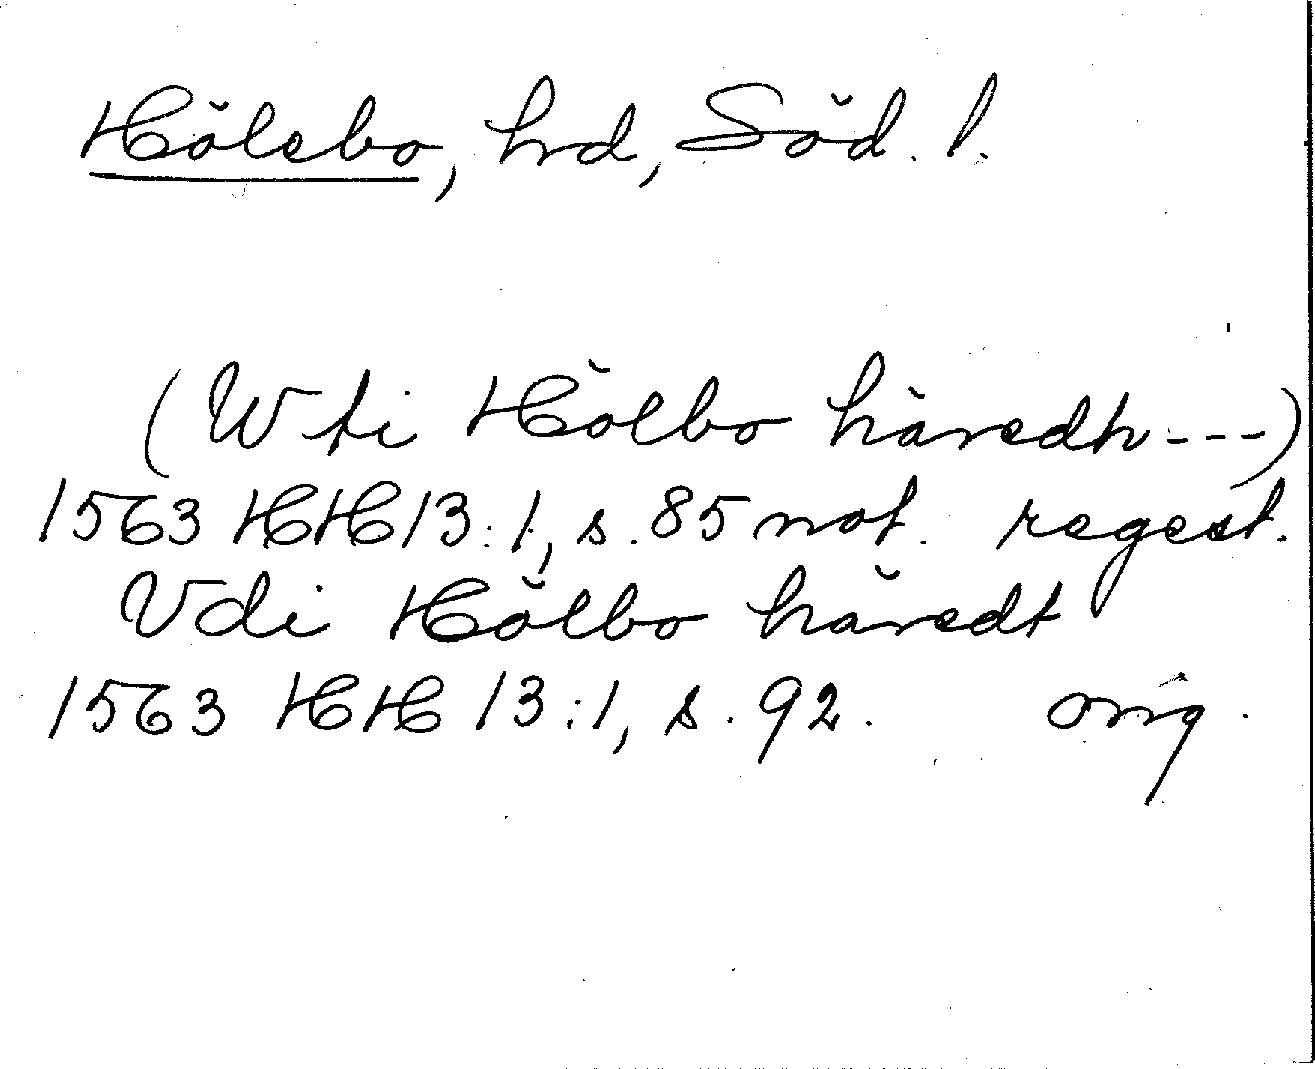 Hölebo, hrd, Söd. l.
(Wti Hölbo häredh---)
1563 HH 13:1, s. 85 not. regest.
Vdi Hölbo häredt
1563 HH 13:1, s. 92. orig.